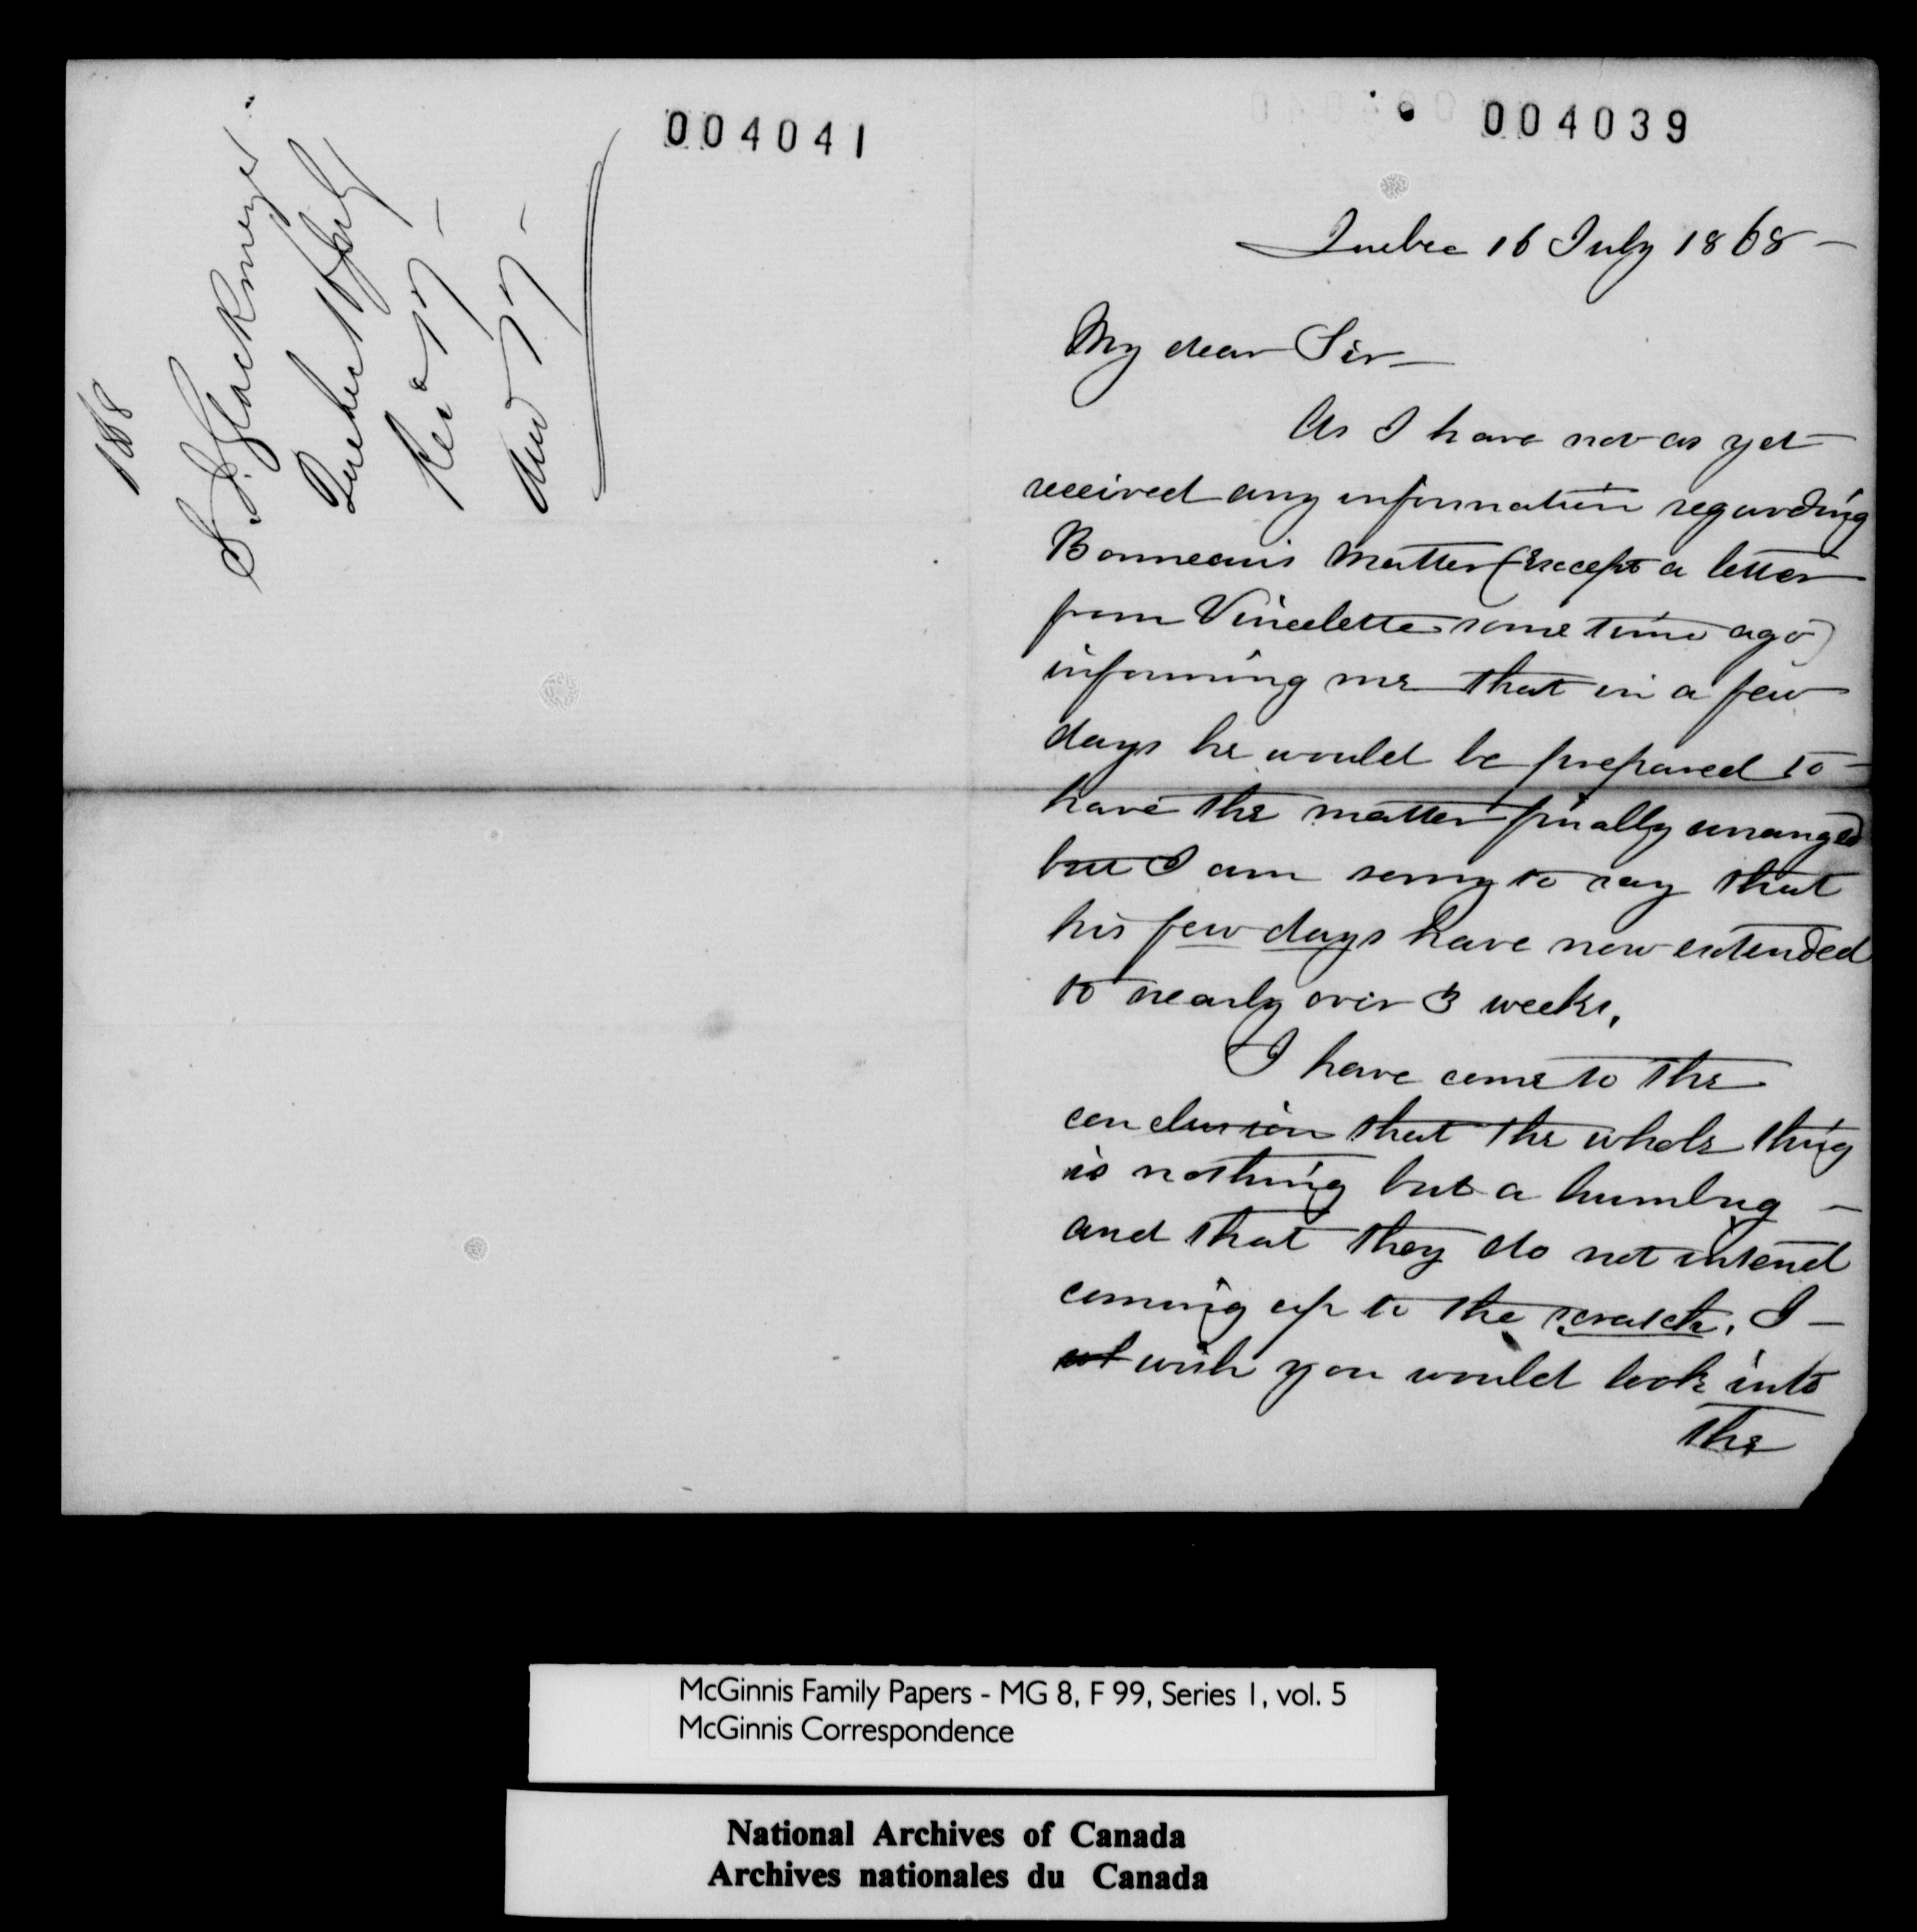 004041
1868
S. I. Glackmeyer
Quebec 16 July
Rec 17 –
Ans 17 –
004039
Quebec 16 July 1868 –
My dear Sir –
As I have not as yet
received any information regarding
Bonneau's matter (Except a letter
from Vincelette some time ago)
informing me that in a few
days he would be prepared to –
have the matter finally arranged
but I am sorry to say that
his few days have now extended
to nearly over 3 weeks.
I have come to the
conclusion that the whole thing
is nothing but a humbug –
and that they do not intend
coming up to the scratch. I –
wish you would look into
the
McGinnis Family Papers - MG 8, F 99, Series 1, vol. 5
McGinnis Correspondence
National Archives of Canada
Archives nationales du Canada